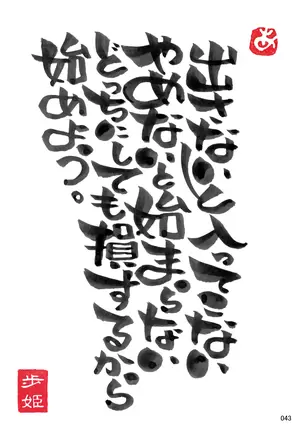 あ
出さないと入ってこない
やめないと始まらない
どっちにしても損するから
始めよう。
歩姫
043